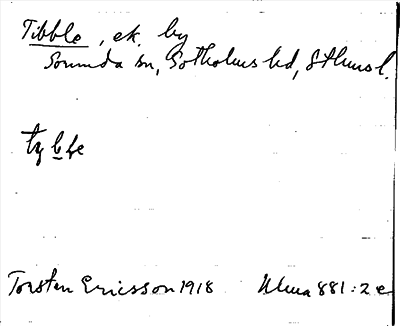 Tibble, ek. by
Sorunda sn, Sotholms hd, Sthms l.
Torsten Ericsson 1918 Ulma 881:2 e